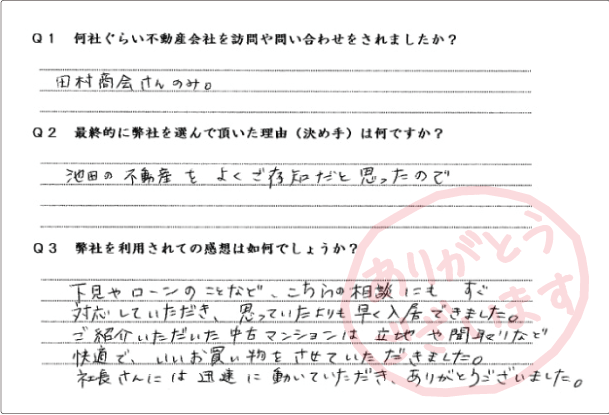 Q1 何社ぐらい不動産会社を訪問や問い合わせをされましたか?
田村商会さんのみ。
Q2 最終的に弊社を選んで頂いた理由(決め手)は何ですか?
池田の不動産をよくご存知だと思ったので
Q3 弊社を利用されての感想は如何でしょうか?
下見やローンのことなど、こちらの相談にもすぐ
対応していただき、思っていたよりも早く入居できました。
ご紹介いただいた中古マンションは立地や間取りなど
快適で、いいお買い物をさせていただきました。
社長さんには迅速に動いていただき、ありがとうございました。
ありがとう
ございます